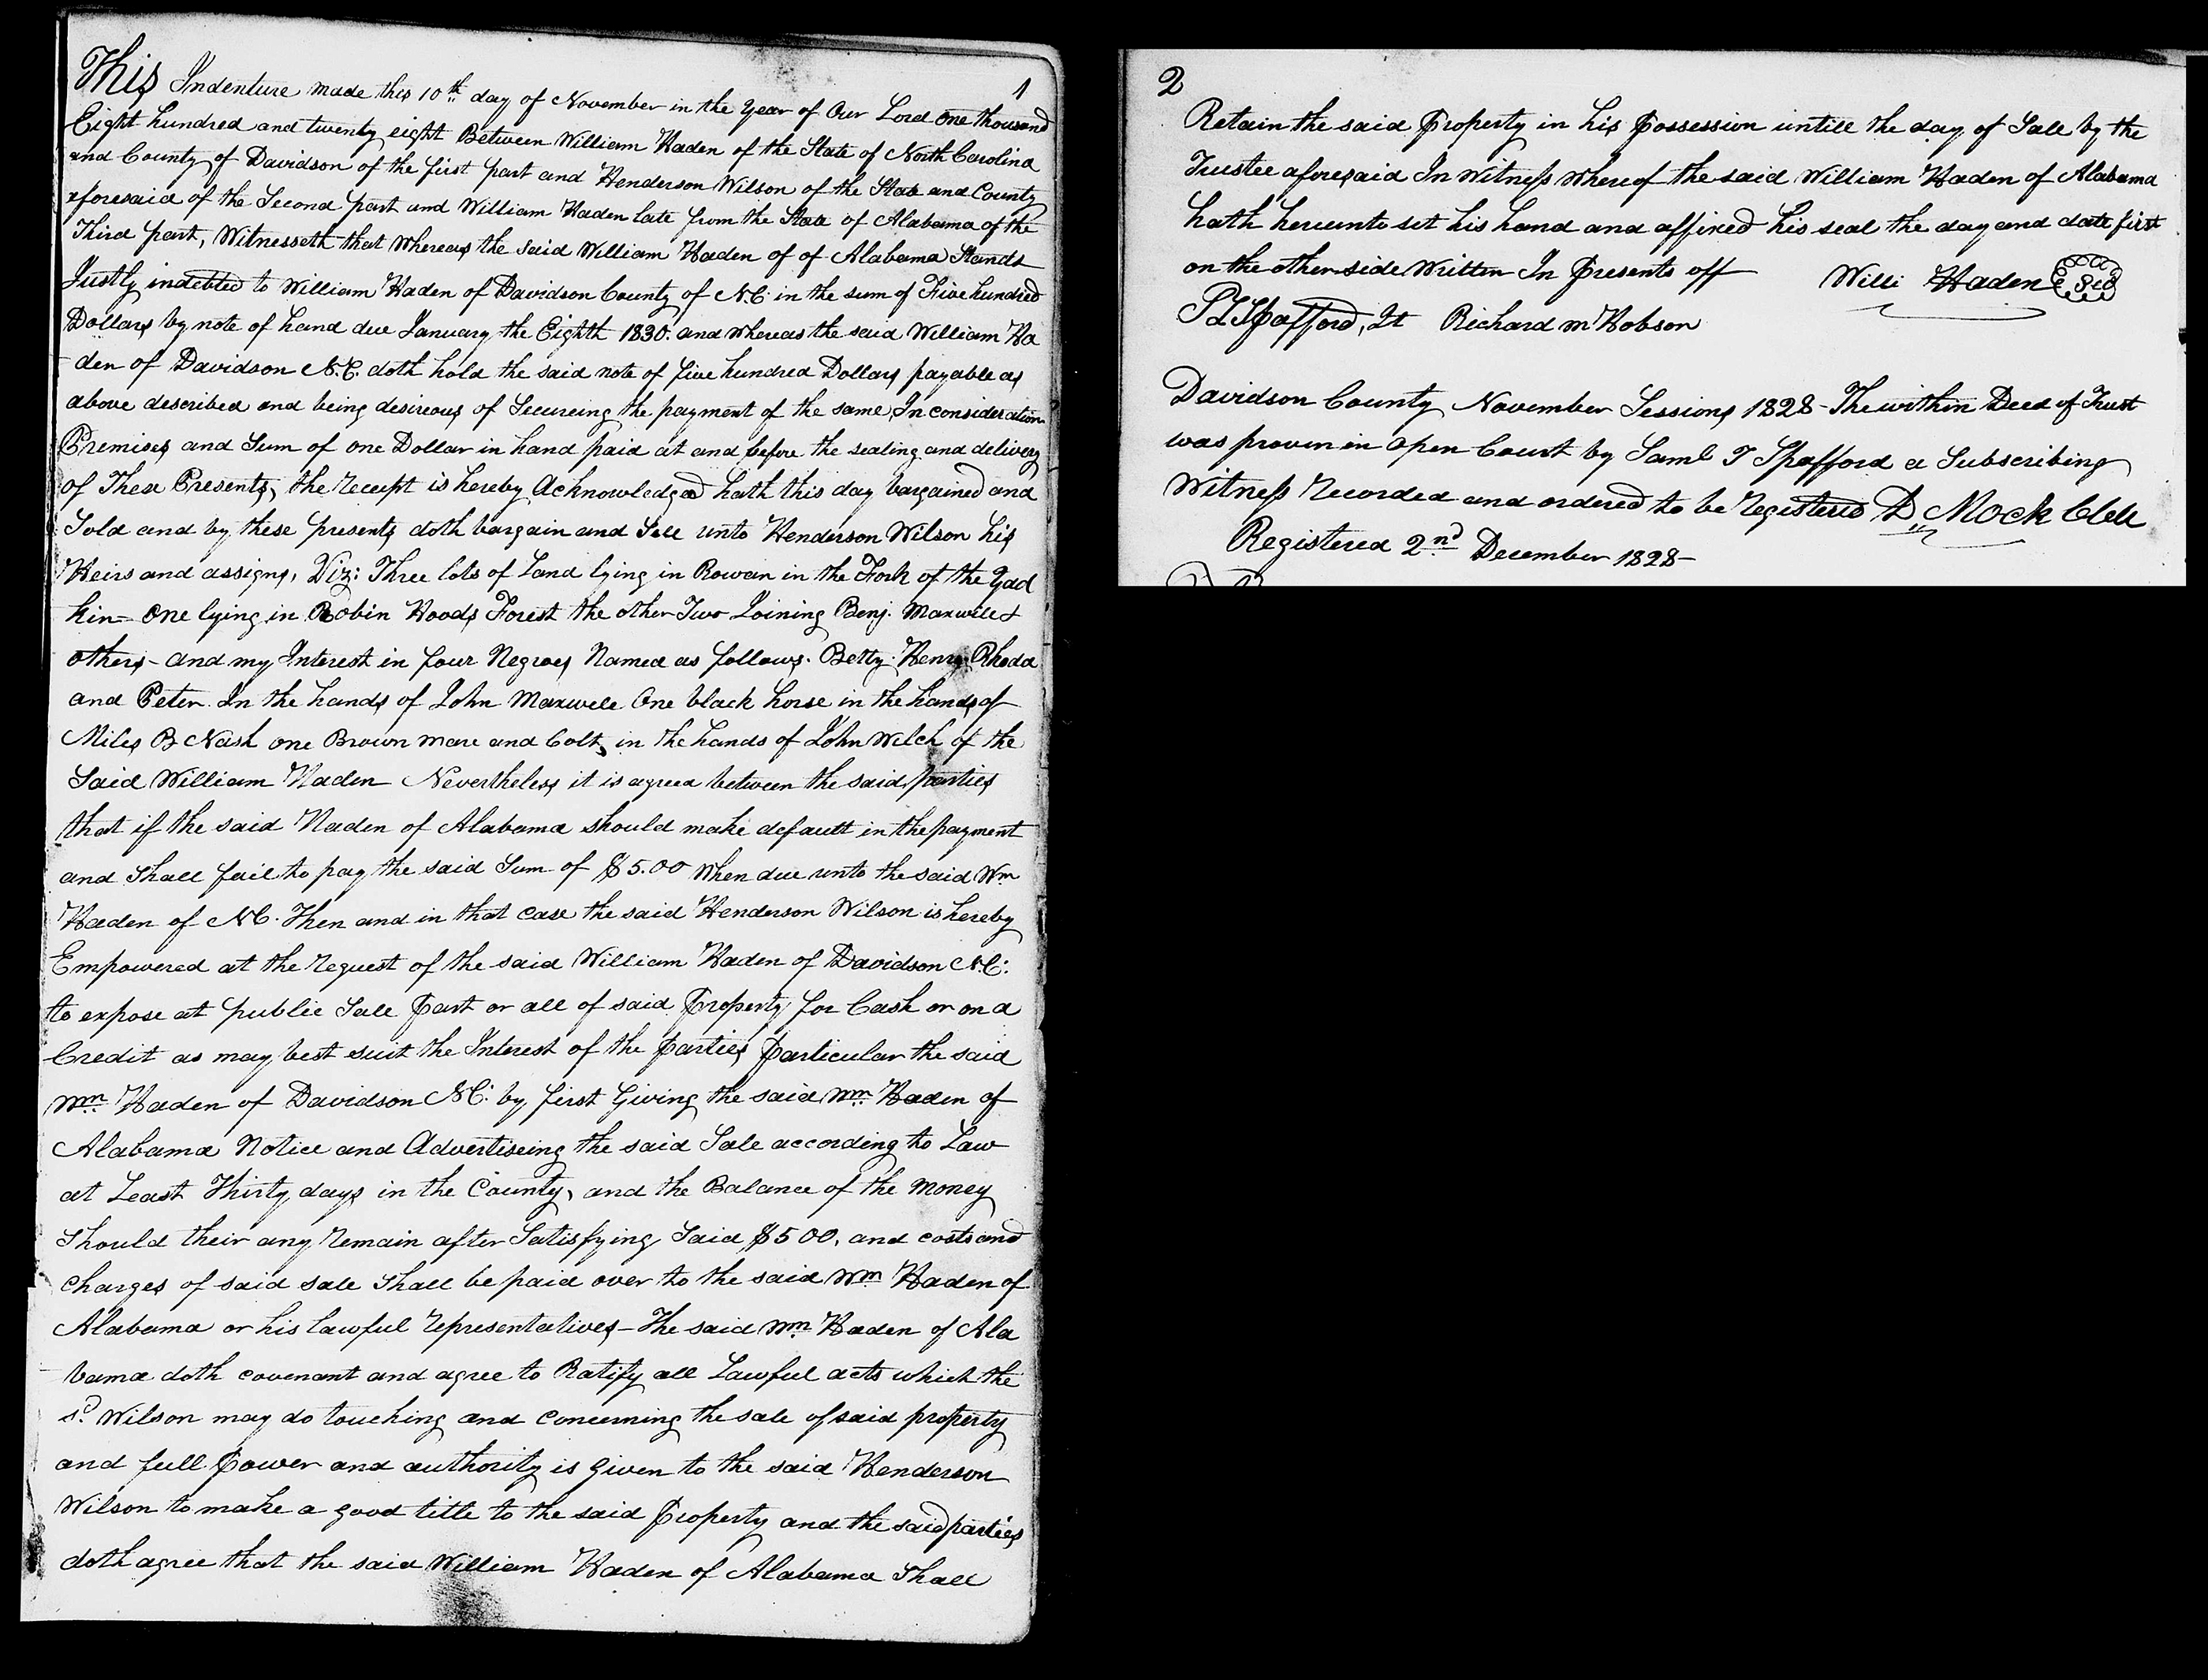 1
This Indenture made this 10th day of November in the Year of Our Lord One thousand
Eight hundred and twenty eight Between William Haden of the State of North Carolina
and County of Davidson of the first part and Henderson Wilson of the State and County
aforesaid of the Second part and William Haden late from the State of Alabama of the
Third part, Witnesseth that Whereas the Said William Haden of of Alabama Stands
Justly indebted to William Haden of Davidson County of N.C. in the sum of Five hundred
Dollars by note of hand due January the Eighth 1830. and whereas the said William Ha
den of Davidson N.C. doth hold the said note of five hundred Dollars payable as
above described and being desireous of Secureing the payment of the same, In consideration
Premises and Sum of one Dollar in hand paid at and before the sealing and delivery
of These Presents, the receipt is hereby Acknowledged hath this day bargained and
Sold and by these presents doth bargain and Sell unto Henderson Wilson his
Heirs and assigns, Viz: Three lots of Land lying in Rowan in the Fork of the Yad
kin= One lying in Robin Hoods Forest the other Two Joining Benj. Maxwell &
others - and my Interest in four Negroes Named as follows. Betty. Henry. Rhoda
and Peter. In the hands of John Maxwell One black horse in the hands of
Miles B Nash one Brown mare and Colt, in the hands of John Welch of the
Said William Haden Nevertheless it is agreed between the said parties
that if the said Haden of Alabama should make default in the payment
and Shall fail to pay the said Sum of $5.00 When due unto the said Wm
Haden of N.C. Then and in that case the said Henderson Wilson is hereby
Empowered at the request of the said William Haden of Davidson N.C.
to expose at public Sale Part or all of said Property for Cash or on a
Credit as may best suit the Interest of the Parties Particular the said
Wm. Haden of Davidson N.C. by first Giving the said Wm. Haden of
Alabama Notice and Advertiseing the said Sale according to Law
at Least Thirty days in the County, and the Balance of the Money
Should their any remain after Satisfying Said $500, and costs and
Charges of said sale Shall be paid over to the said Wm Haden of
Alabama or his lawful representatives - The said Wm. Haden of Ala
bama doth covenant and agree to Ratify all Lawful acts which the
sd. Wilson may do touching and Concerning the sale of said property
and full Power and authority is given to the said Henderson
Wilson to make a good title to the said Property and the said parties
doth agree that the said William Haden of Alabama Shall
2
Retain the said Property in his Possession untill the day of Sale by the
Trustee aforesaid In Witness Whereof the said William Haden of Alabama
hath hereunto set his hand and affixed his seal the day and date first
on the other side Written In Presents off Willi Haden
Spafford, Jt Richard m Hobson
Davidson County November Sessions 1828 - The within Deed of Trust
was proven in Open Court by Saml T Spafford a Subscribing
Witness recorded and ordered to be registered D. Mock Clk
Registered 2nd December 1828 -